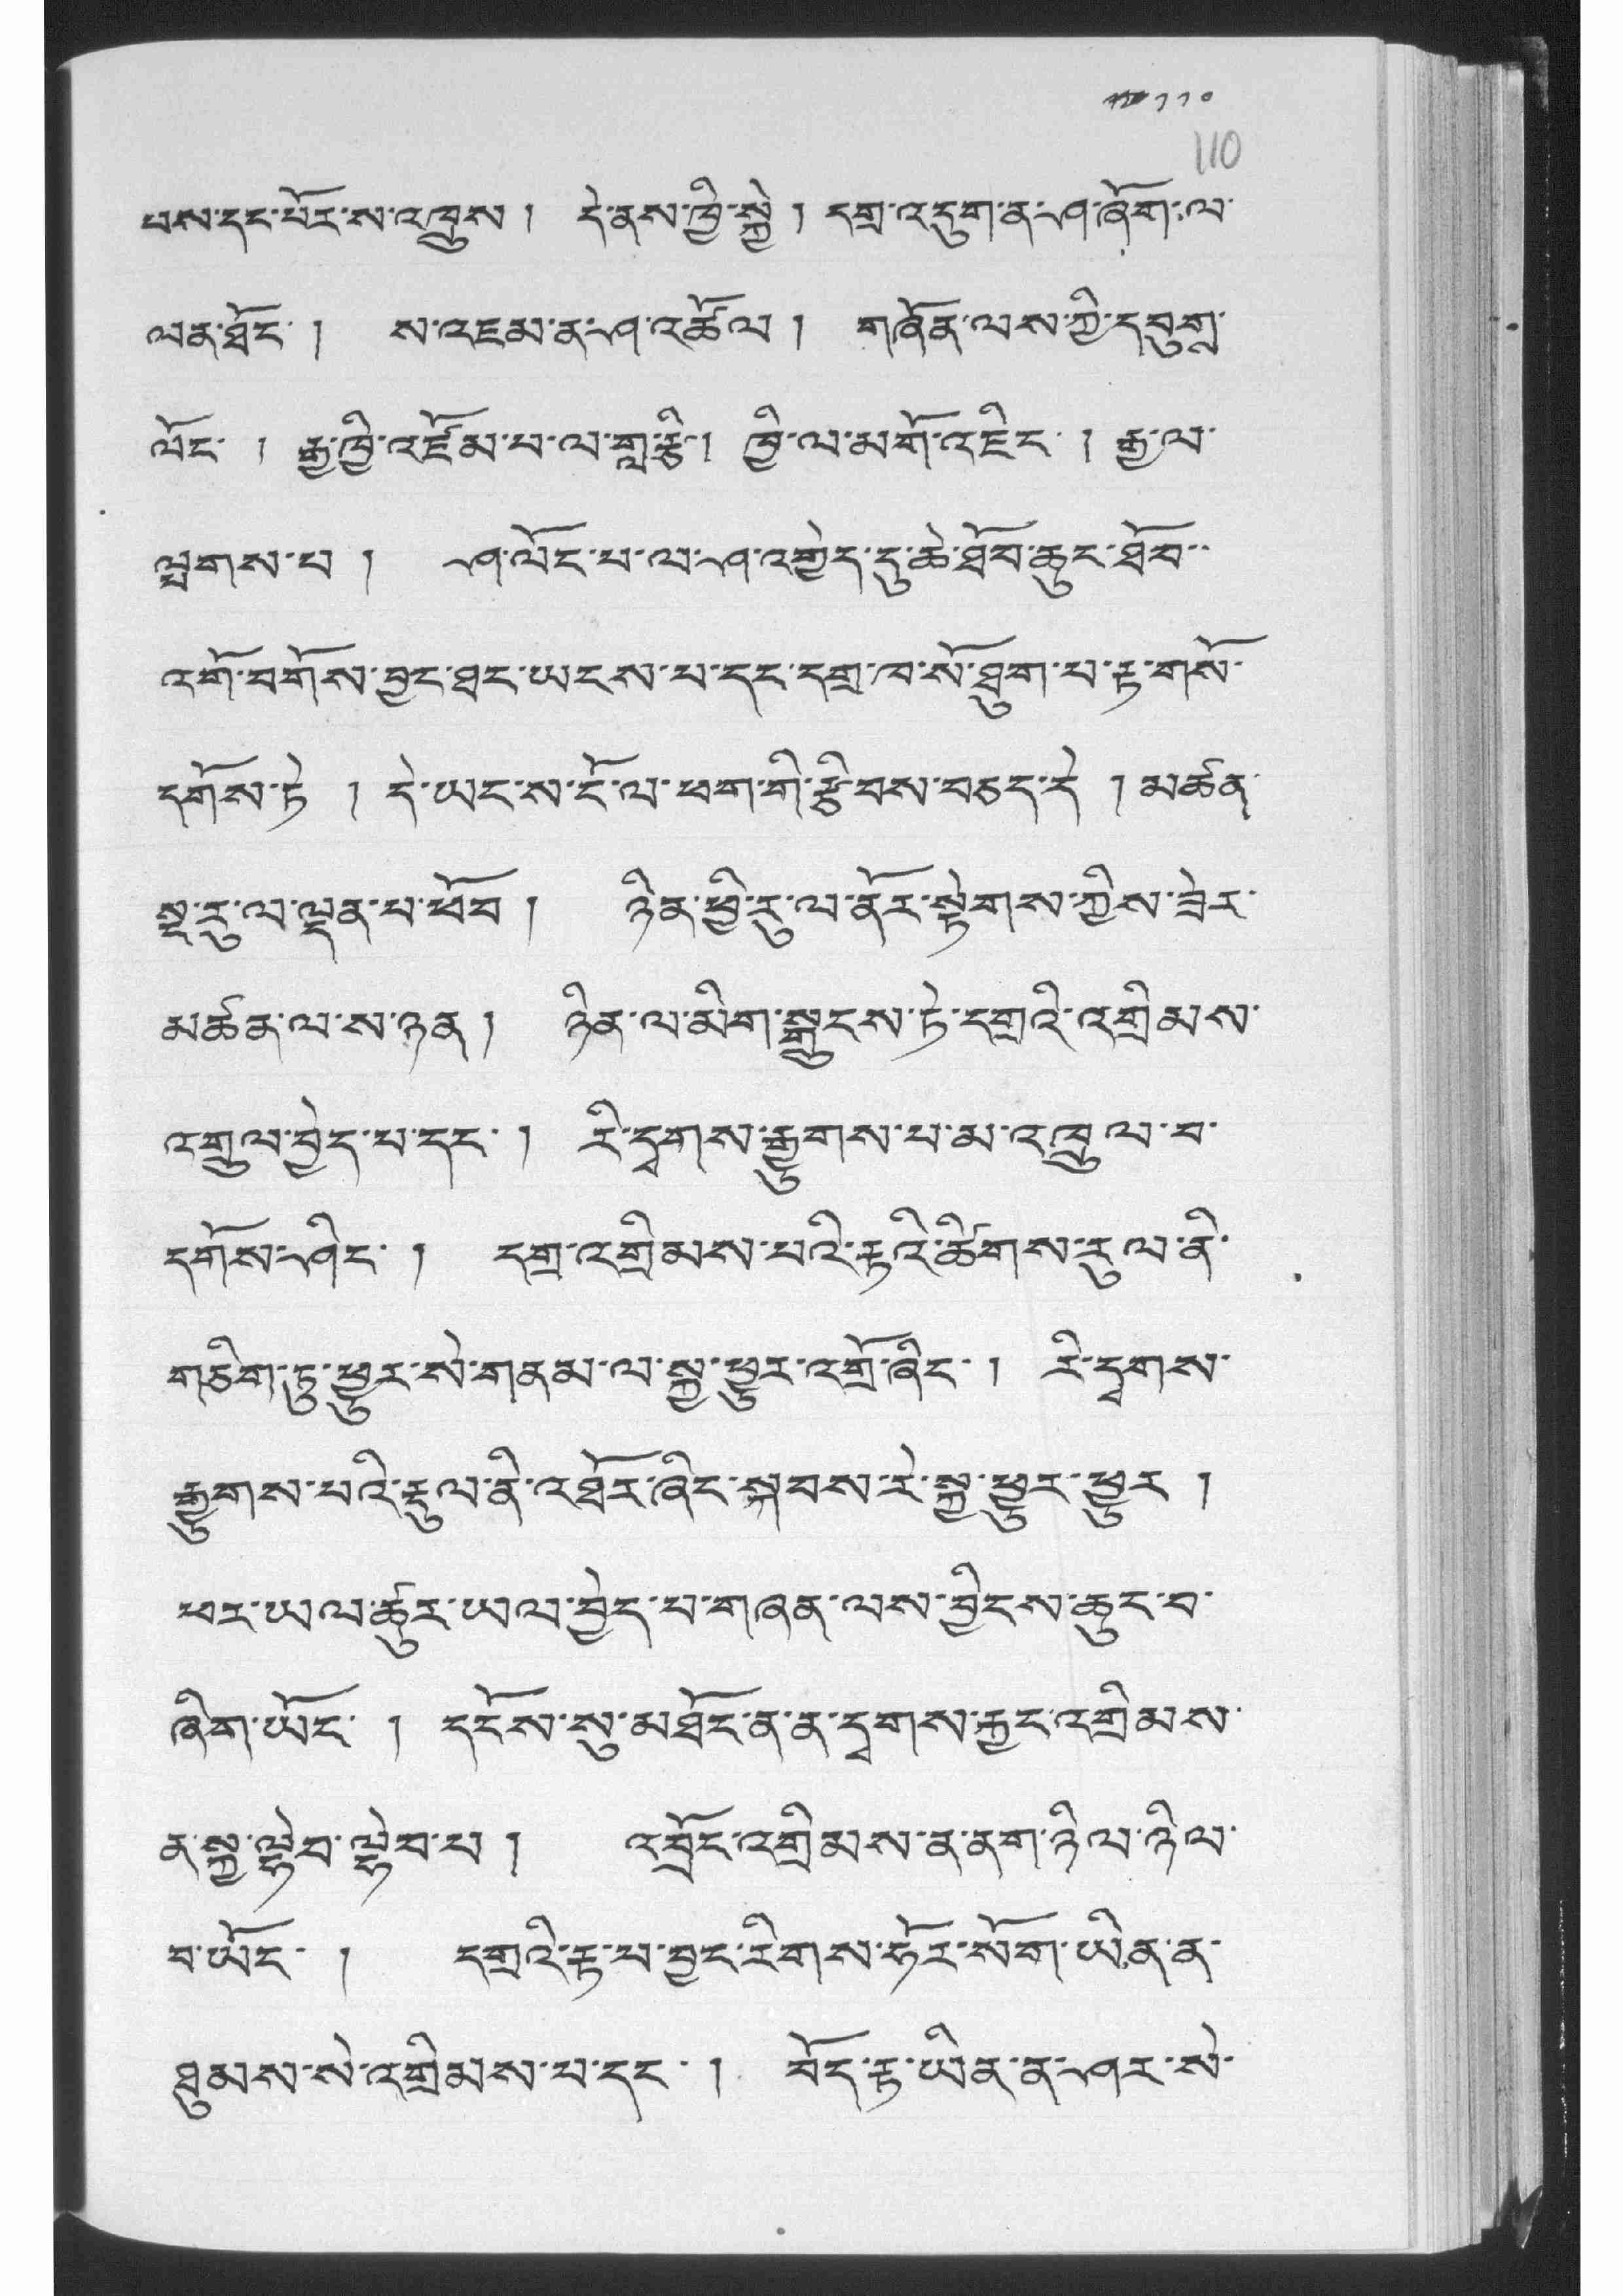 ༡༡༠
110
པས་དང་པོར་ས་འཁྲུས། དེ་ནས་ཁྱི་སྐྱེ། དགྲ་འདུག་ན་ཤ་ཞོག་ལ་
ལན་ཐོང་། ས་འཇམ་ན་ཤ་འཚོལ། གཞོན་ལས་ཀྱི་དབུགྲ་
ལོང་། རྒྱ་ཁྱི་འཛོམ་པ་ལ་གླ་རྩི། ཁྱི་ལ་མགོ་འཇིང་། རྒྱ་ལ་
ལྤགས་པ། ཤ་ལོང་པ་ལ་ཤ་འགྱེད་དུ་ཆེ་ཐོབ་ཆུང་ཐོབ་
འགོ་བགོས་བྱང་ཐང་ཡངས་པ་དང་དགྲ་ཁ་སོ་ཐུག་པ་རྟ་གསོ་
དགོས་ཏེ། དེ་ཡང་ས་ངོ་ལ་ཕག་གི་རྩིབས་བཅད་དེ། མཚན་
སྔ་རུ་ལ་ལྡན་པ་ཕོབ། ཉིན་ཕྱི་རུ་ལ་ནོར་སྟེགས་ཀྱིས་ཟེར་
མཚན་ལ་ས་ཉན། ཉིན་ལ་མིག་སྒྲུངས་ཏེ་དགྲའི་འགྲིམས་
འགྲུལ་བྱེད་པ་དང་། རི་དྭགས་རྒྱུགས་པ་མ་འཁྲུལ་བ་
དགོས་ཤིང་། དགྲ་འགྲིམས་པའི་རྟའི་ཚིགས་རུལ་ནི་
གཅིག་ཏུ་ཕྱུར་སེ་གནམ་ལ་སྐྱ་ཕྱུར་འགྲོ་ཞིང་། རི་དྭགས་
རྒྱུགས་པའི་རྡུལ་ནི་འཐོར་ཞིང་སྐབས་རེ་སྐྱ་ཕྱུར་ཕྱུར།
ཕར་ཡལ་ཚུར་ཡལ་བྱེད་པ་གཞན་ལས་བྱིངས་ཆུང་བ་
ཞིག་ཡོང་། དངོས་སུ་མཐོང་ན་ན་དྭགས་རྐྱང་འགྲིམས་
ན་སྐྱ་ལྷེབ་ལྷེབ་པ། འབྲོང་འགྲིམས་ན་ནག་ཉིལ་ཉིལ་
བ་ཡོང་། དགྲའི་རྟ་པ་བྱང་རིགས་ཧོར་སོག་ཡིན་ན་
ཐུམས་སེ་འགྲིམས་པ་དང་། བོད་རྟ་ཡིན་ན་ཤར་སེ་